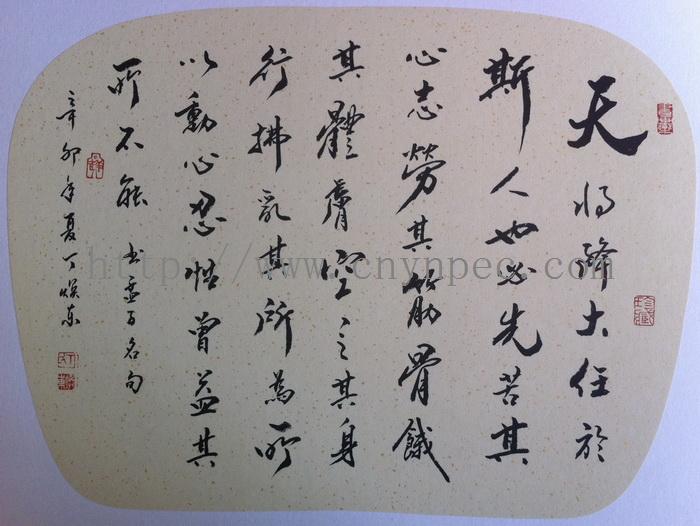 天将降大任於
斯人也必先苦其
心志勞其筋骨餓
其體膚空乏其身
行拂乱其所為所
以動心忍性曾益其
所不能 书孟子名句
辛卯年夏丁焕东
http://www.cnynpec.com